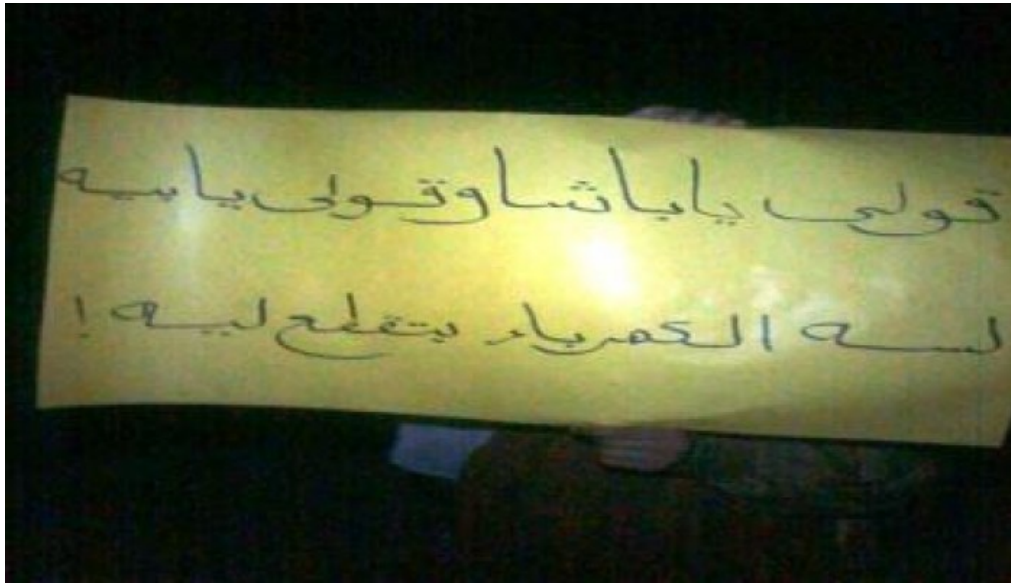 قولي يا باشا وقولى يا بيه
لسه الكهرباء بتقطع ليه !